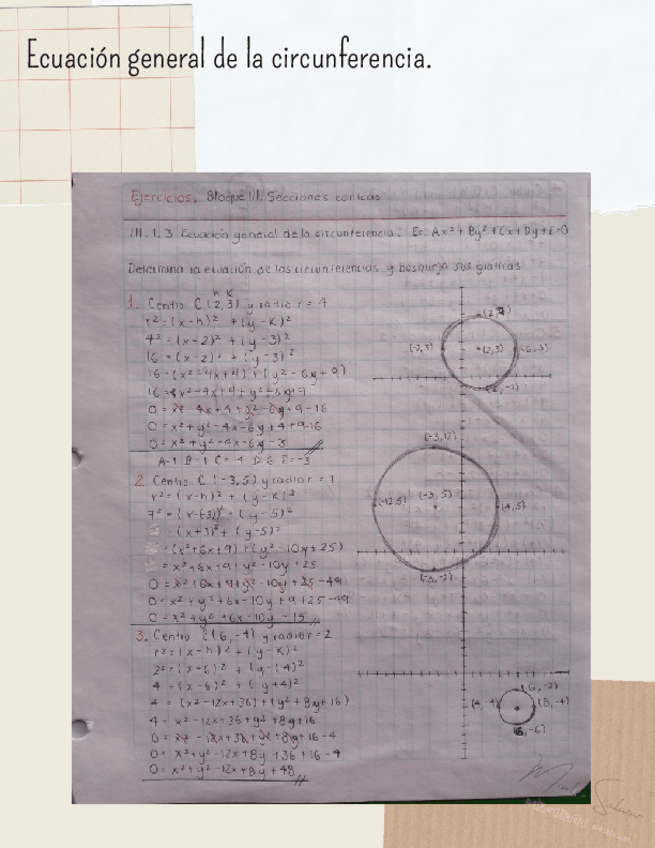 Ecuación general de la circunferencia.
Ejercicios. Bloque III. Secciones cónicas
III. 1. 3 Ecuación general de la circunferencia: Ec: Ax² + By² + Cx + Dy + E = 0
Determina la ecuación de las circunferencias y bosqueja sus gráficas
h K
1. Centro C(2,3) y radio r = 4
r² = (x-h)² + (y-K)²
4² = (x-2)² + (y-3)²
16 = (x-2)² + (y-3)²
16 = (x²-4x+4) + (y²-6y+9)
16 = x²-4x+4+y²-6y+9
0 = x²-4x+4+y²-6y+9-16
0 = x²+y²-4x-6y+4+9-16
0 = x²+y²-4x-6y-3
A=1 B=1 C=-4 D=-6 E=-3
(2,7)
(-2,3)
(2,3)
(6,3)
(2,-1)
2. Centro C(-3,5) y radio r = 7
r² = (x-h)² + (y-K)²
7² = (x-(-3))² + (y-5)²
= (x+3)² + (y-5)²
= (x²+6x+9) + (y²-10y+25)
= x²+6x+9+y²-10y+25
0 = x²+6x+9+y²-10y+25-49
0 = x²+y²+6x-10y+9+25-49
0 = x²+y²+6x-10y-15
(-3,12)
(-12,5)
(-3,5)
(4,5)
(-3,-2)
3. Centro C(6,-4) y radio r = 2
r² = (x-h)² + (y-K)²
2² = (x-6)² + (y-(-4)²
4 = (x-6)² + (y+4)²
4 = (x²-12x+36) + (y²+8y+16)
4 = x²-12x+36+y²+8y+16
0 = x²-12x+36+y²+8y+16-4
0 = x²+y²-12x+8y+36+16-4
0 = x²+y²-12x+8y+48
(6,-2)
(4,-4)
(8,-4)
(6,-6)
Salazar